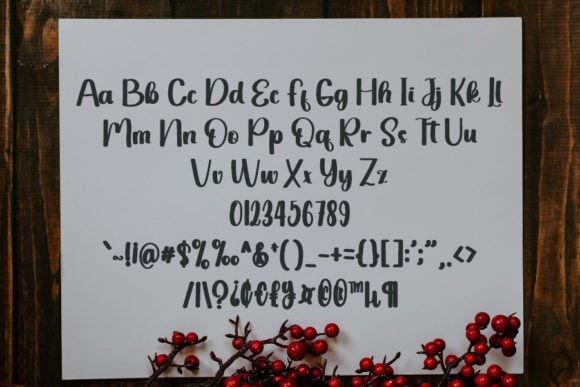 Aa Bb Cc Dd Ee Ff Gg Hh Ii Jj Kk Ll
Mm Nn Oo Pp Qq Rr Ss Tt Uu
Vv Ww Xx Yy Zz
0123456789
`~!i@#$%‰^&*()_-+={}[]:';",.<>
/|\?¿¢€£¥¤©®™µ¶